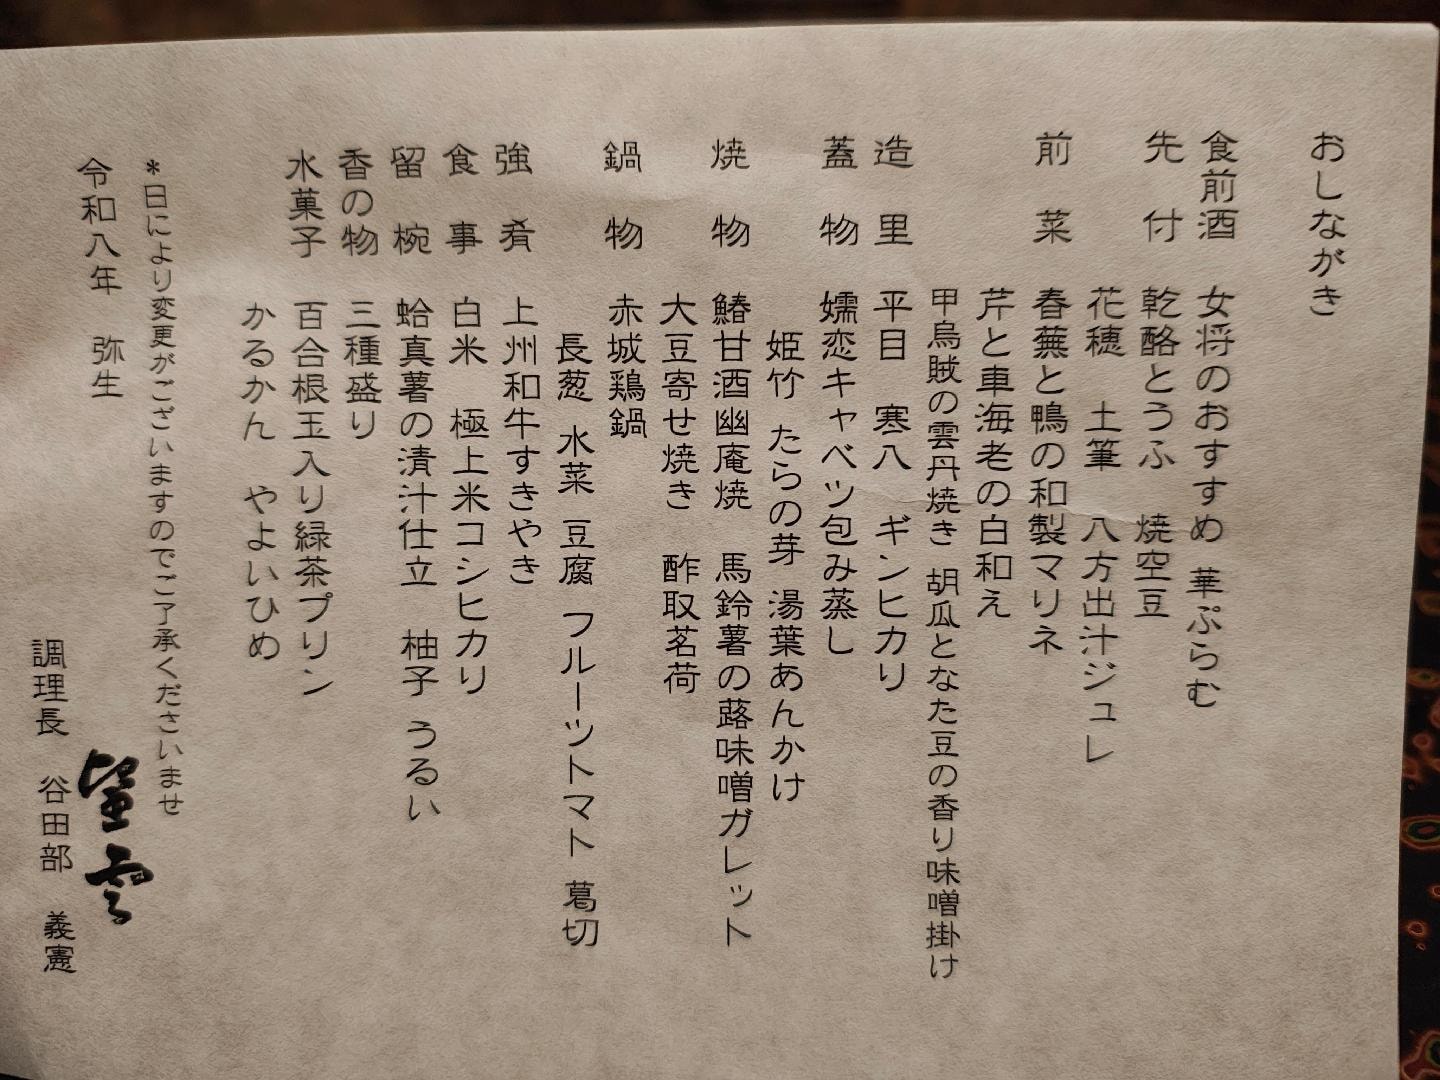 おしながき
食前酒 女将のおすすめ 華ぷらむ
先付 乾酪とうふ 焼空豆
花穂 土筆 八方出汁ジュレ
前菜 春蕪と鴨の和製マリネ
芹と車海老の白和え
甲烏賊の雲丹焼き 胡瓜となた豆の香り味噌掛け
造里 平目 寒八 ギンヒカリ
蓋物 嬬恋キャベツ包み蒸し
姫竹 たらの芽 湯葉あんかけ
焼物 鰆甘酒幽庵焼 馬鈴薯の蕗味噌ガレット
大豆寄せ焼き 酢取茗荷
鍋物 赤城鶏鍋
長葱 水菜 豆腐 フルーツトマト 葛切
強肴 上州和牛すきやき
食事 白米 極上米コシヒカリ
留椀 蛤真薯の清汁仕立 柚子 うるい
香の物 三種盛り
水菓子 百合根玉入り緑茶プリン
かるかん やよいひめ
*日により変更がございますのでご了承くださいませ
令和八年 弥生
調理長 谷田部 義憲